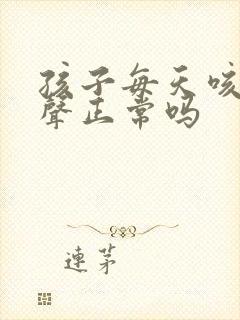 孩子每天咳
聲正常吗
連茅